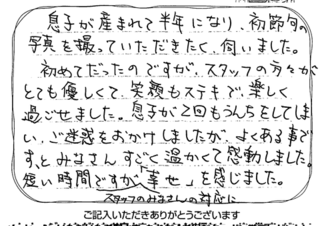 息子が産まれて半年になり、初節句の
写真を撮っていただきたく、伺いました。
初めてだったのですが、スタッフの方々が
とても優しくて、笑顔もステキで、楽しく
過ごせました。息子が2回もうんちをしてしま
い、ご迷惑をおかけしましたが、よくある事で
す、とみなさんすごく温かくて感動しました。
短い時間ですが、幸せを感じました。
スタッフのみなさんの対応に
ご記入いただきありがとうございます